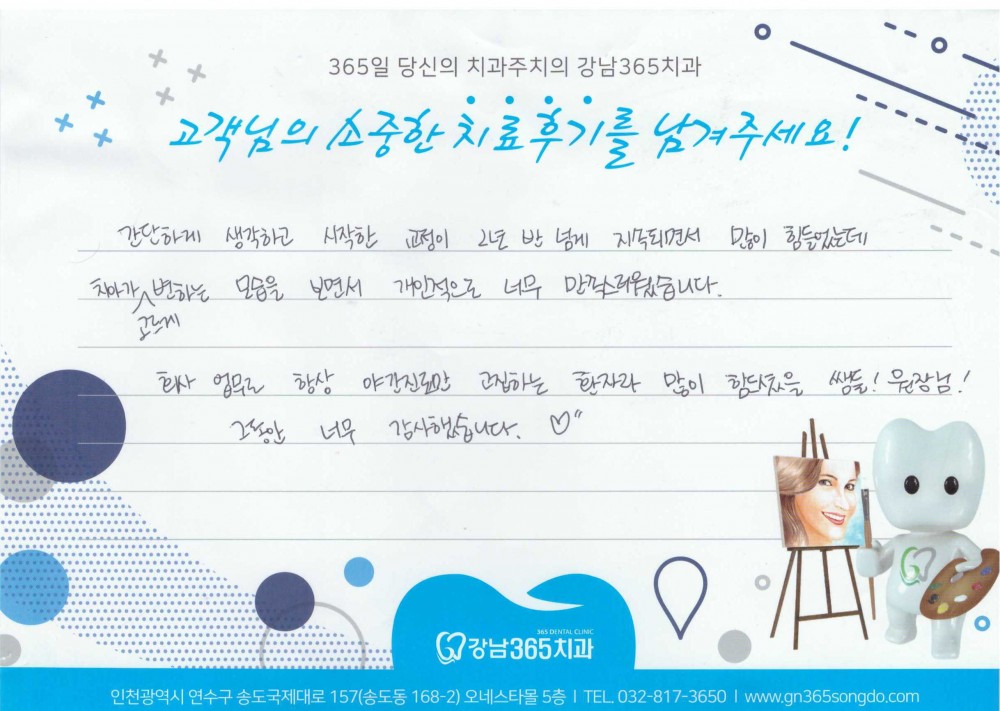 365일 당신의 치과주치의 강남365치과
고객님의 소중한 치료후기를 남겨주세요!
간단하게 생각하고 시작한 교정이 2년 반 넘게 지속되면서 많이 힘들었는데
치아가 고르게 변하는 모습을 보면서 개인적으로 너무 만족스러웠습니다.
회사 업무로 항상 야간진료만 고집하는 환자라 많이 힘드셨을 쌤들! 원장님!
그동안 너무 감사했습니다. ♡"
365 DENTAL CLINIC
강남365치과
인천광역시 연수구 송도국제대로 157(송도동 168-2) 오네스타몰 5층 | TEL. 032-817-3650 | www.gn365songdo.com